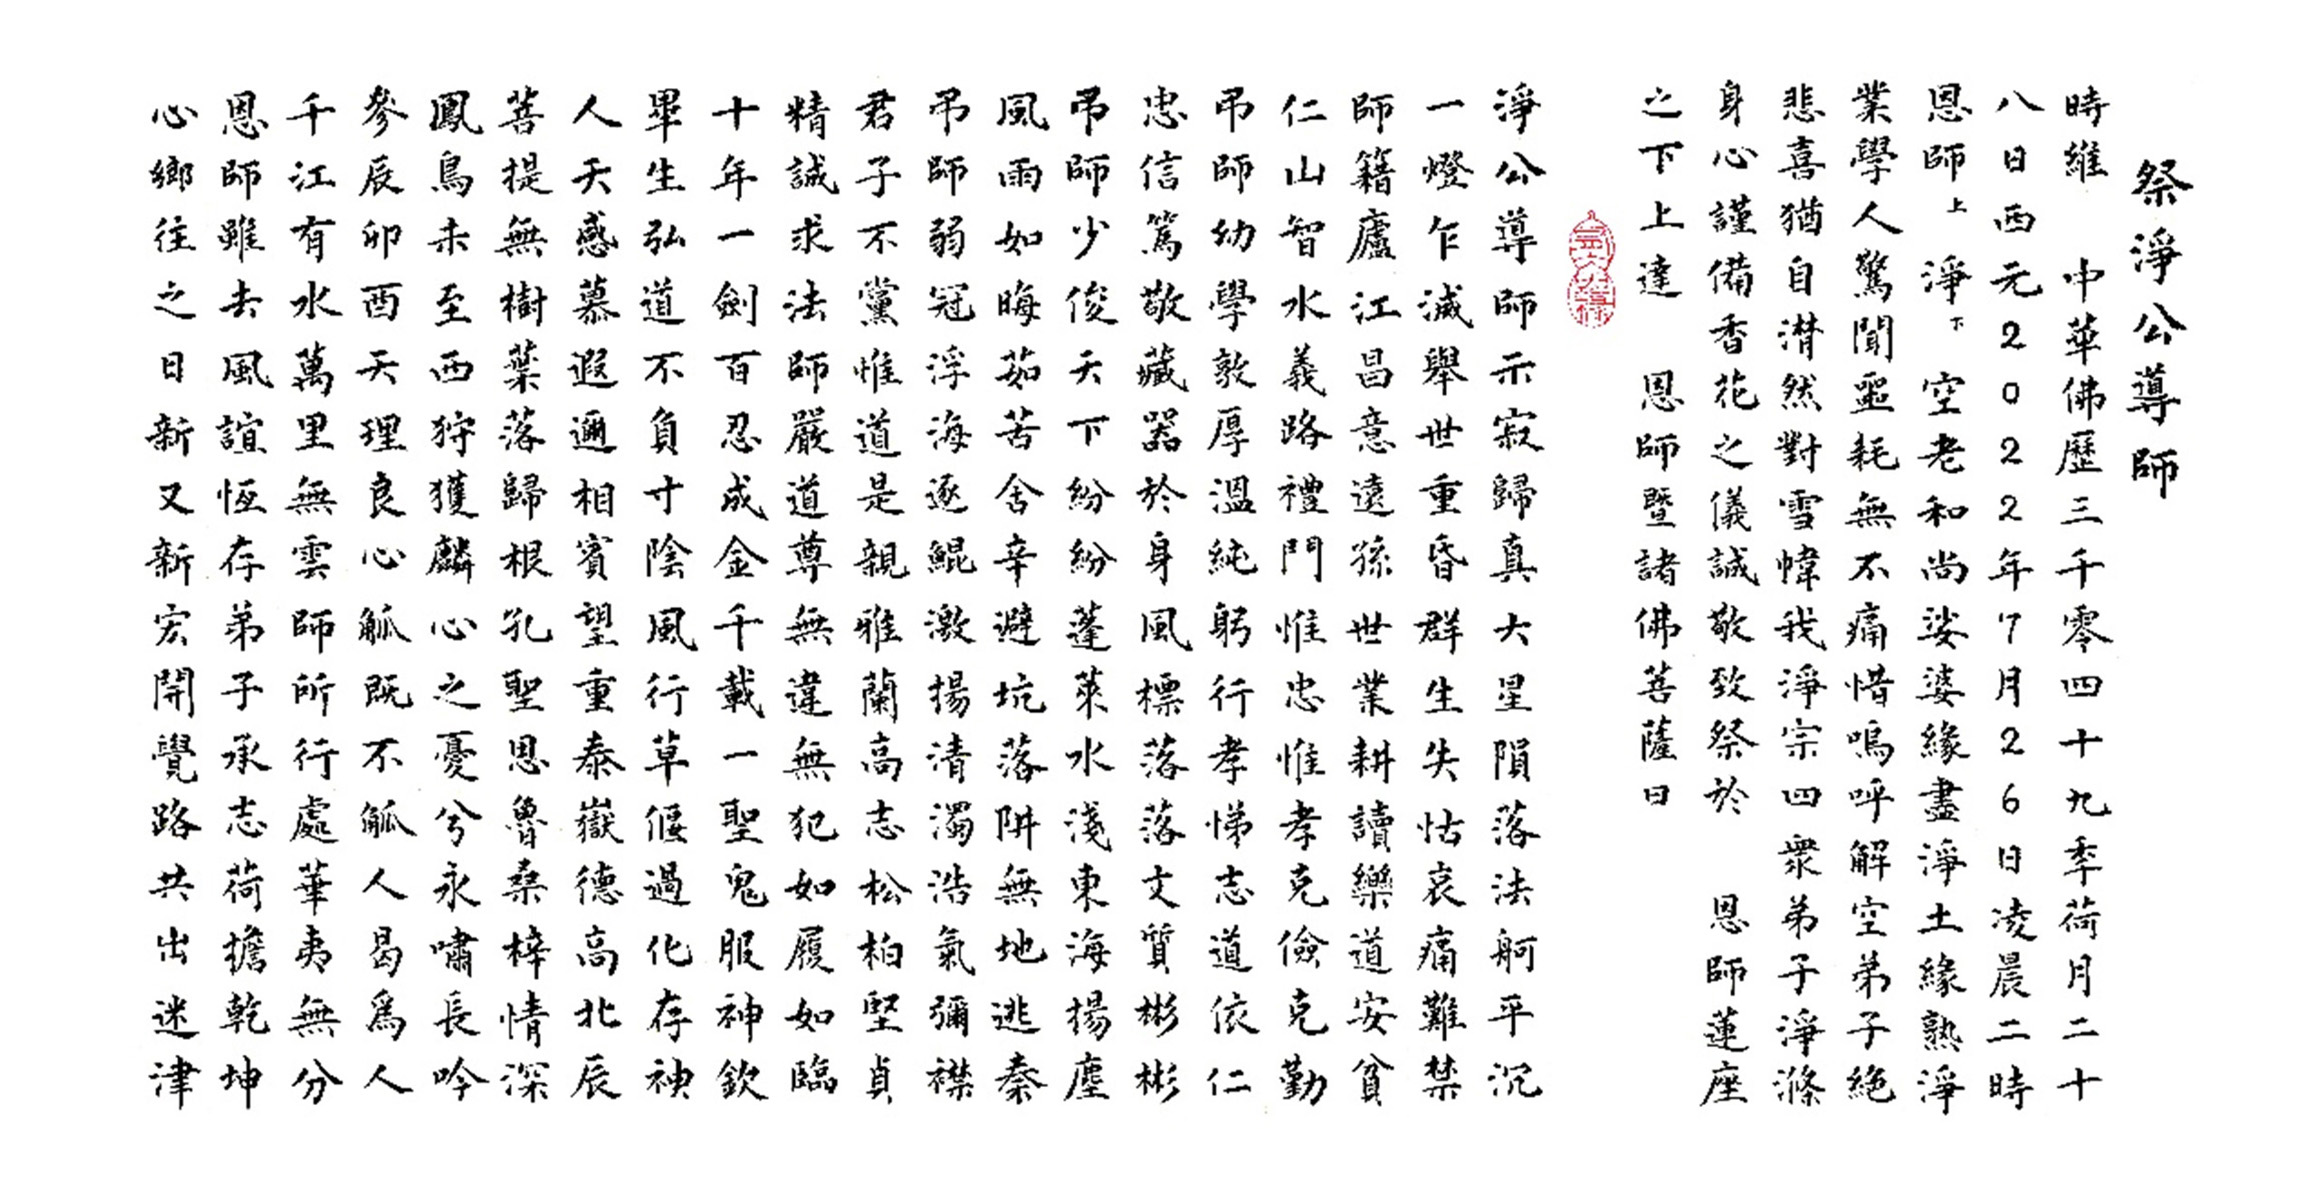 祭淨公導師
時維　中華佛歷三千零四十九季荷月二十
八日西元2022年7月26日凌晨二時
恩師上淨下空老和尚娑婆緣盡淨土緣熟淨
業學人驚聞噩耗無不痛惜嗚呼解空弟子絕
悲喜猶自潸然對雪幃我淨宗四眾弟子淨滌
身心謹備香花之儀誠敬致祭於　恩師蓮座
之下上達　恩師暨諸佛菩薩曰
淨公導師示寂歸真大星隕落法舸平沉
一燈乍滅舉世重昏群生失怙哀痛難禁
師籍廬江昌意遠孫世業耕讀樂道安貧
仁山智水義路禮門惟忠惟孝克儉克勤
弔師幼學敦厚溫純躬行孝悌志道依仁
忠信篤敬藏器於身風標落落文質彬彬
弔師少俊天下紛紛蓬萊水淺東海揚塵
風雨如晦茹苦舍辛避坑落阱無地逃秦
弔師弱冠浮海逐鯤激揚清濁浩氣彌襟
君子不黨惟道是親雅蘭高志松柏堅貞
精誠求法師嚴道尊無違無犯如履如臨
十年一劍百忍成金千載一聖鬼服神欽
畢生弘道不負寸陰風行草偃過化存神
人天感慕遐邇相賓望重泰嶽德高北辰
菩提無樹葉落歸根孔聖恩魯桑梓情深
鳳鳥未至西狩獲麟心之憂兮永嘯長吟
參辰卯酉天理良心觚既不觚人曷為人
千江有水萬里無雲師所行處華夷無分
恩師雖去風誼恆存弟子承志荷擔乾坤
心鄉往之日新又新宏開覺路共出迷津